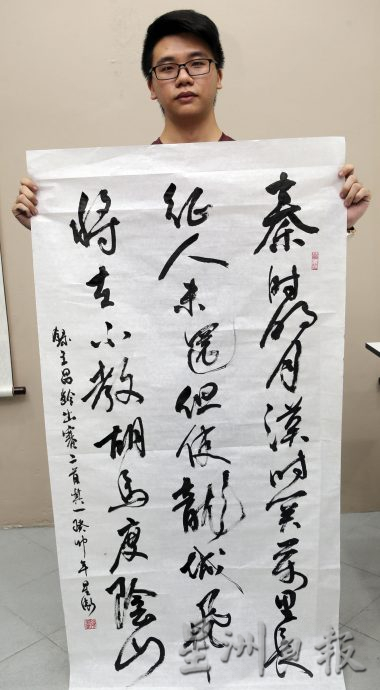 秦时明月漢时关萬里長
征人未還但使龍城飛
將在不教胡馬度陰山
錄王昌齡出塞二首其一癸卯年
星洲日報